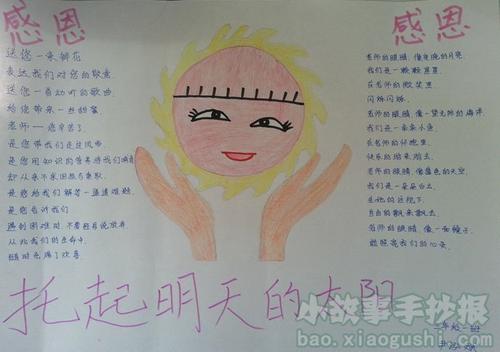 感恩
送您一束鲜花
表达我们对您的敬意
送您一首动听的歌曲
给您带来一些甜蜜
老师——您辛苦了
是您带我们走进风帆
是您用知识的营养浇我们
却从来不求回报与索取
是您给我们解答一道道难题
是您告诉我们
遇到困难时,不要轻易说放弃
从此我们的生命中
随时充满了欢喜
感恩
老师的眼睛,像皎皎的月亮
我们是一颗颗星星
在老师的微笑里
闪烁闪烁.
老师的眼睛,像一望无际的海洋
我们是一条条小鱼
在老师的怀抱里
快乐的游来游去.
老师的眼睛,像蓝蓝的天空
我们是一朵朵白云
在她的注视下
自由的飘来飘去.
老师的眼睛,像一面镜子
能照亮我们的心灵.
托起明天的太阳
二年级二班
小故事手抄报
bao.xiaogushi.com